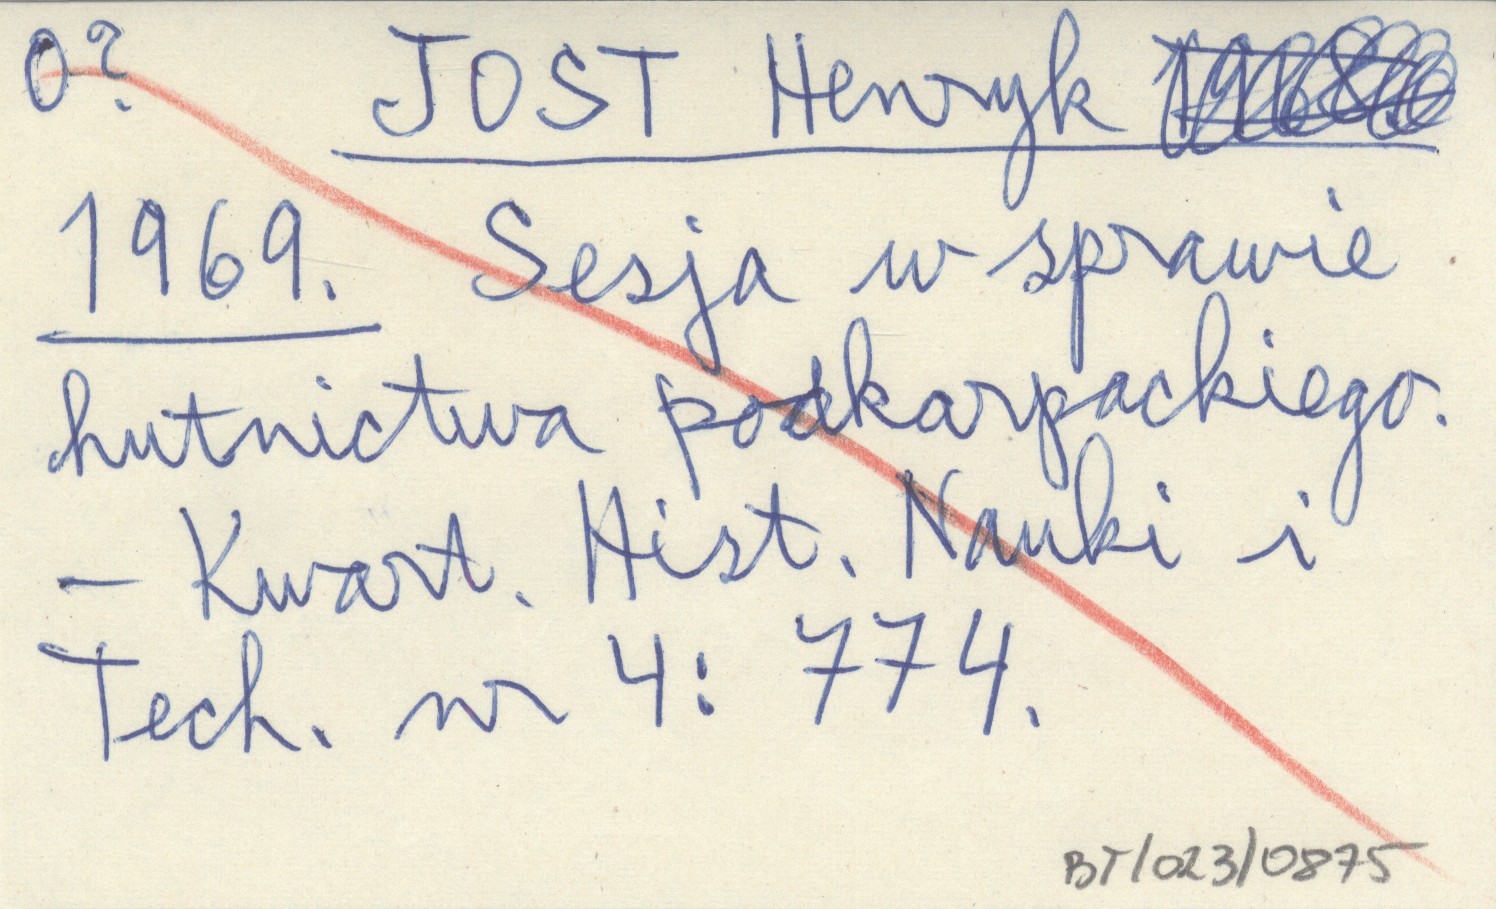 0? JOST Henryk
1969. Sesja w sprawie
hutnictwa podkarpackiego.
- Kwart. Hist. Nauki i
Tech. nr 4: 774.
BT/023/0875